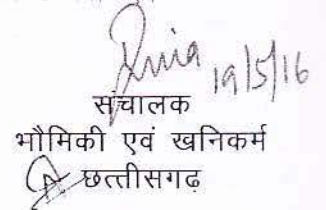 19/5/16
संचालक
भौमिकी एवं खनिकर्म
छत्तीसगढ़